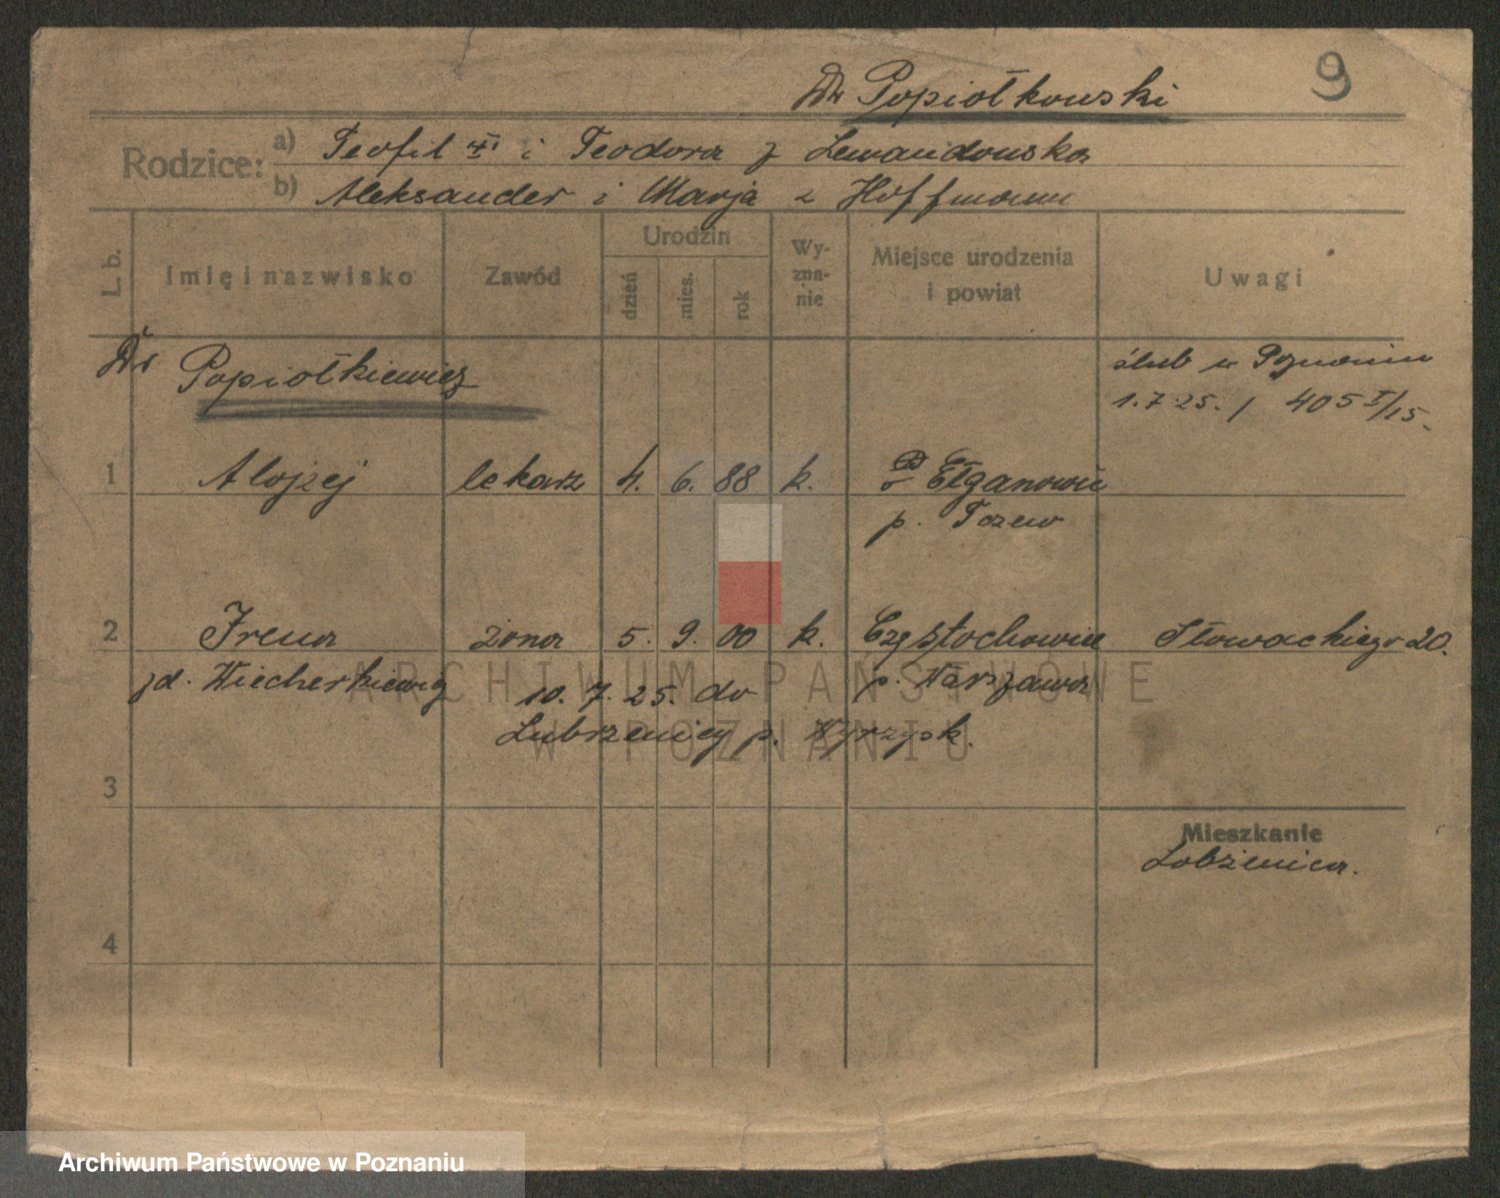 Dr Popiołkowski
9
Rodzice:
a) Teofil i Teodora z Lewandowska
b) Aleksander i Marja z Hoffmann
L. b.
Imię i nazwisko
Zawód
Urodzin
dzień
mies.
rok
Wy-
zna-
nie
Miejsce urodzenia
i powiat
Uwagi
Dr Popiołkiewicz
ślub w Poznaniu
1.7.25. / 405 I/15.
1 Alojzej lekarz 4. 6. 88 k. Ełganowie
p. Tczew
2 Irena żona 5. 9. 00 k. Częstochowice Słowackiego 20.
zd. Wiecherkiewicz 10. 7. 25. do p. Warszawa
Lubrzenicy p. Wyrzysk.
3
Mieszkanie
Lobżenica.
4
ARCHIWUM PAŃSTWOWE
W POZNANIU
Archiwum Państwowe w Poznaniu